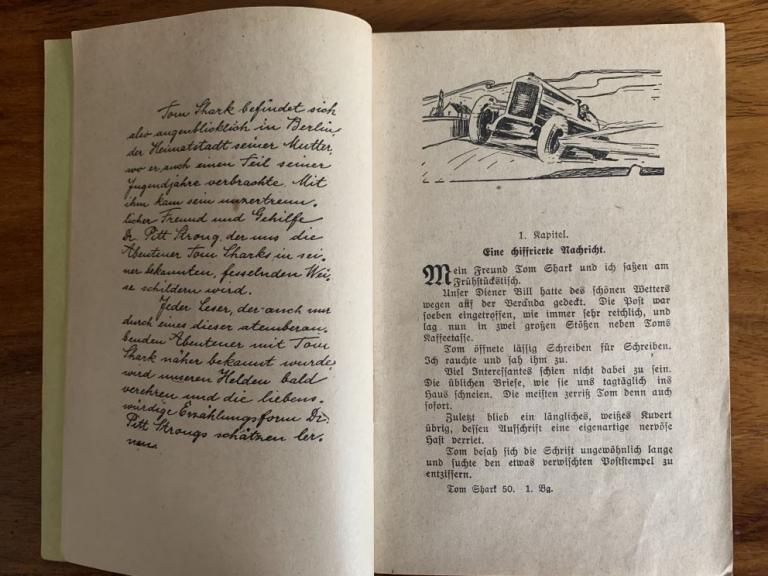 Tom Shark befindet sich
also augenblicklich in Berlin,
der Heimatstadt seiner Mutter,
wo er auch einen Teil seiner
Jugendjahre verbrachte. Mit
ihm kam sein unzertrenn-
licher Freund und Gehilfe
Dr. Pitt Strong, der uns die
Abenteuer Tom Sharks in sei-
ner bekannten, fesselnden Wei-
se schildern wird.
Jeder Leser, der auch nur
durch eines dieser atemberau-
benden Abenteuer mit Tom
Shark näher bekannt wurde,
wird unseren Helden bald
verehren und die liebens-
würdige Erzählungsform Dr.
Pitt Strongs schätzen ler-
nen.
1. Kapitel.
Eine chiffrierte Nachricht.
Mein Freund Tom Shark und ich saßen am
Frühstückstisch.
Unser Diener Bill hatte des schönen Wetters
wegen auf der Veranda gedeckt. Die Post war
soeben eingetroffen, wie immer sehr reichlich, und
lag nun in zwei großen Stößen neben Toms
Kaffeetasse.
Tom öffnete lässig Schreiben für Schreiben.
Ich rauchte und sah ihm zu.
Viel Interessantes schien nicht dabei zu sein.
Die üblichen Briefe, wie sie uns tagtäglich ins
Haus schneien. Die meisten zerriß Tom denn auch
sofort.
Zuletzt blieb ein längliches, weißes Kuvert
übrig, dessen Aufschrift eine eigenartige nervöse
Hast verriet.
Tom besah sich die Schrift ungewöhnlich lange
und suchte den etwas verwischten Poststempel zu
entziffern.
Tom Shark 50. 1. Bg.